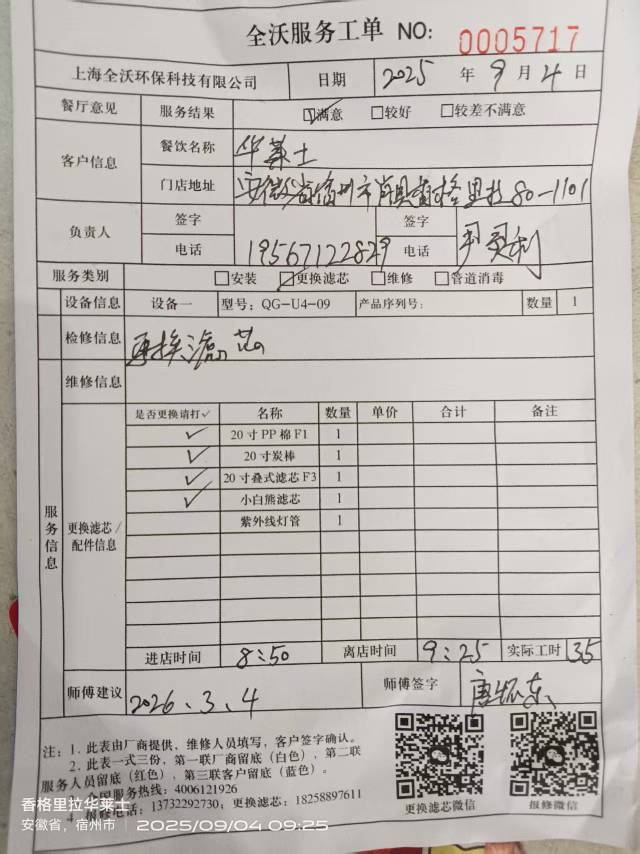 全沃服务工单 NO: 0005717
上海全沃环保科技有限公司 日期 2025 年 9 月 4 日
餐厅意见 服务结果 ☑满意 □较好 □较差不满意
客户信息 餐饮名称 华莱士
门店地址 安徽省宿州市萧县香格里拉 80-1101
负责人 签字 签字
电话 19567122829 电话
服务类别 □安装 ☑更换滤芯 □维修 □管道消毒
设备信息 设备一 型号: QG-U4-09 产品序列号: 数量 1
检修信息 更换滤芯
维修信息
服务信息
更换滤芯/配件信息
是否更换请打✓ 名称 数量 单价 合计 备注
✓ 20寸PP棉F1 1
✓ 20寸炭棒 1
✓ 20寸叠式滤芯F3 1
✓ 小白熊滤芯 1
紫外线灯管 1
进店时间 8:50 离店时间 9:25 实际工时 35
师傅建议 2026.3.4 师傅签字 唐怀东
注: 1. 此表由厂商提供，维修人员填写，客户签字确认。
2. 此表一式三份，第一联厂商留底（白色），第二联
服务人员留底（红色），第三联客户留底（蓝色）。
全国服务热线: 4006121926
4. 报修电话: 13732292730; 更换滤芯: 18258897611
更换滤芯微信 报修微信
香格里拉华莱士
安徽省，宿州市 2025/09/04 09:25